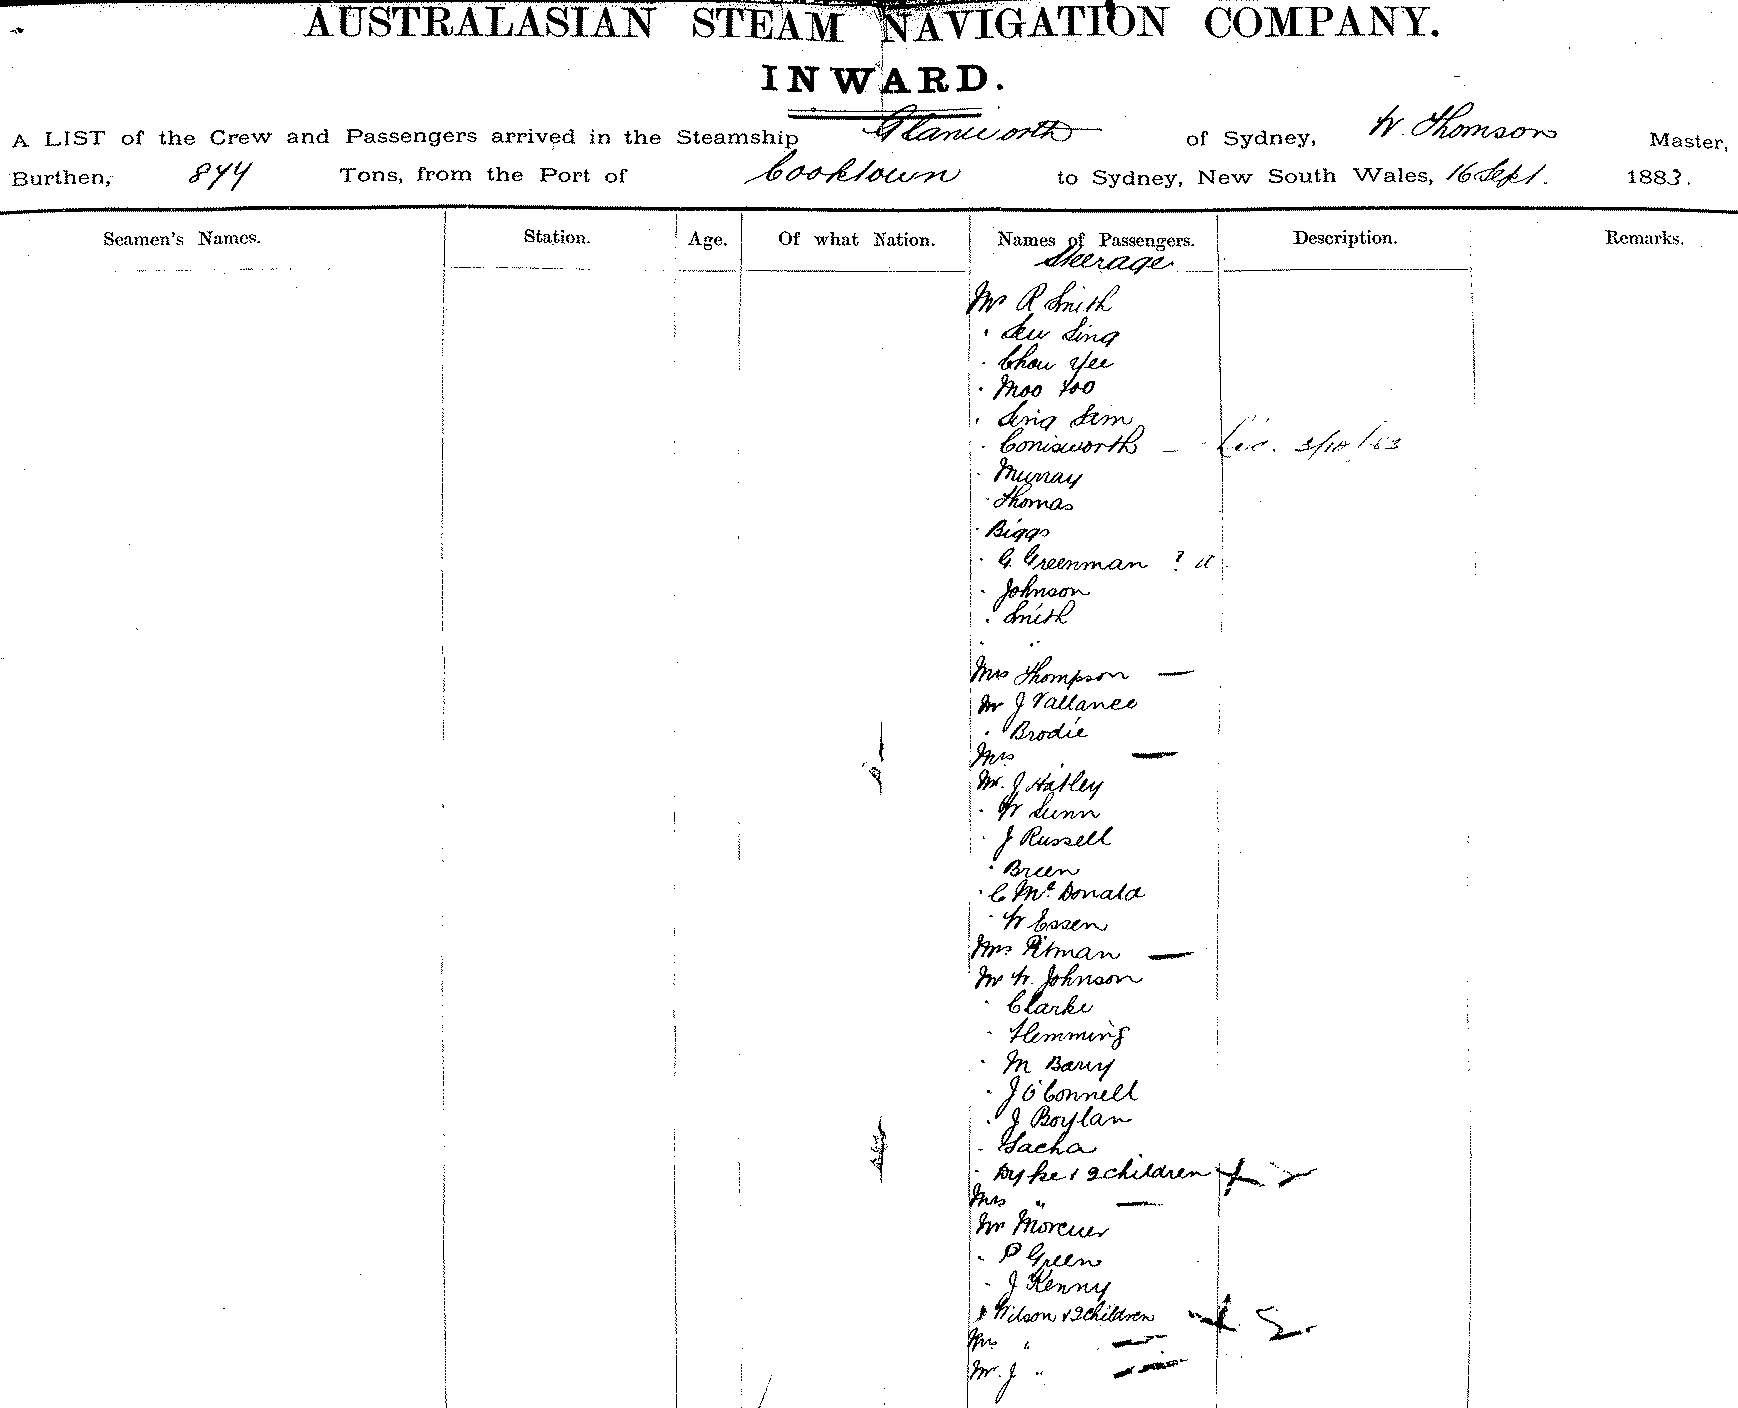 AUSTRALASIAN STEAM NAVIGATION COMPANY.
INWARD.
A LIST of the Crew and Passengers arrived in the Steamship Glanworth of Sydney, W. Thomson Master,
Burthen, 844 Tons, from the Port of Cooktown to Sydney, New South Wales, 16 Sept. 1883.
Seamen's Names. Station. Age. Of what Nation. Names of Passengers. Description. Remarks.
Steerage
Mr R Smith
" Sing
" Chou Yee
" Moo Too
" Sing Sim
" Conisworth —
" Murray
" Thomas
" Biggs
" G. Greenman ?
" Johnson
" Smith
" "
Mrs Thompson —
Mr J Vallance
" Brodie
Mrs —
Mr. J Hatley
" W Lunn
" J Russell
" Breen
" C McDonald
" W Essen
Mrs Pitman —
Mr W. Johnson
" Clarke
" Flemming
" M Barry
" J O'Connell
" J Boylan
" Sacha
" Dyke & 2 children + 2
Mrs " —
Mr
" P Green
" J Kenny
" Wilson & 2 children + 2.
Mrs " —
Mr. J " —